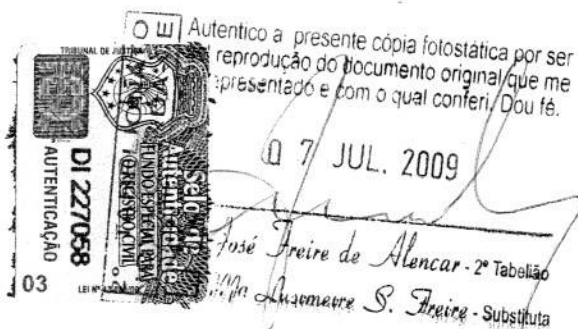 Autentico a presente cópia fotostática por ser
reprodução do documento original que me
apresentado e com o qual conferi. Dou fé.
0 7 JUL. 2009
José Freire de Alencar - 2º Tabelião
S. Freire - Substituta
TRIBUNAL DE JUSTIÇA
Selo de
Autenticidade
FUNDO ESPECIAL PARA
O REGISTRO CIVIL
DI 227058
AUTENTICAÇÃO
03
LEI Nº